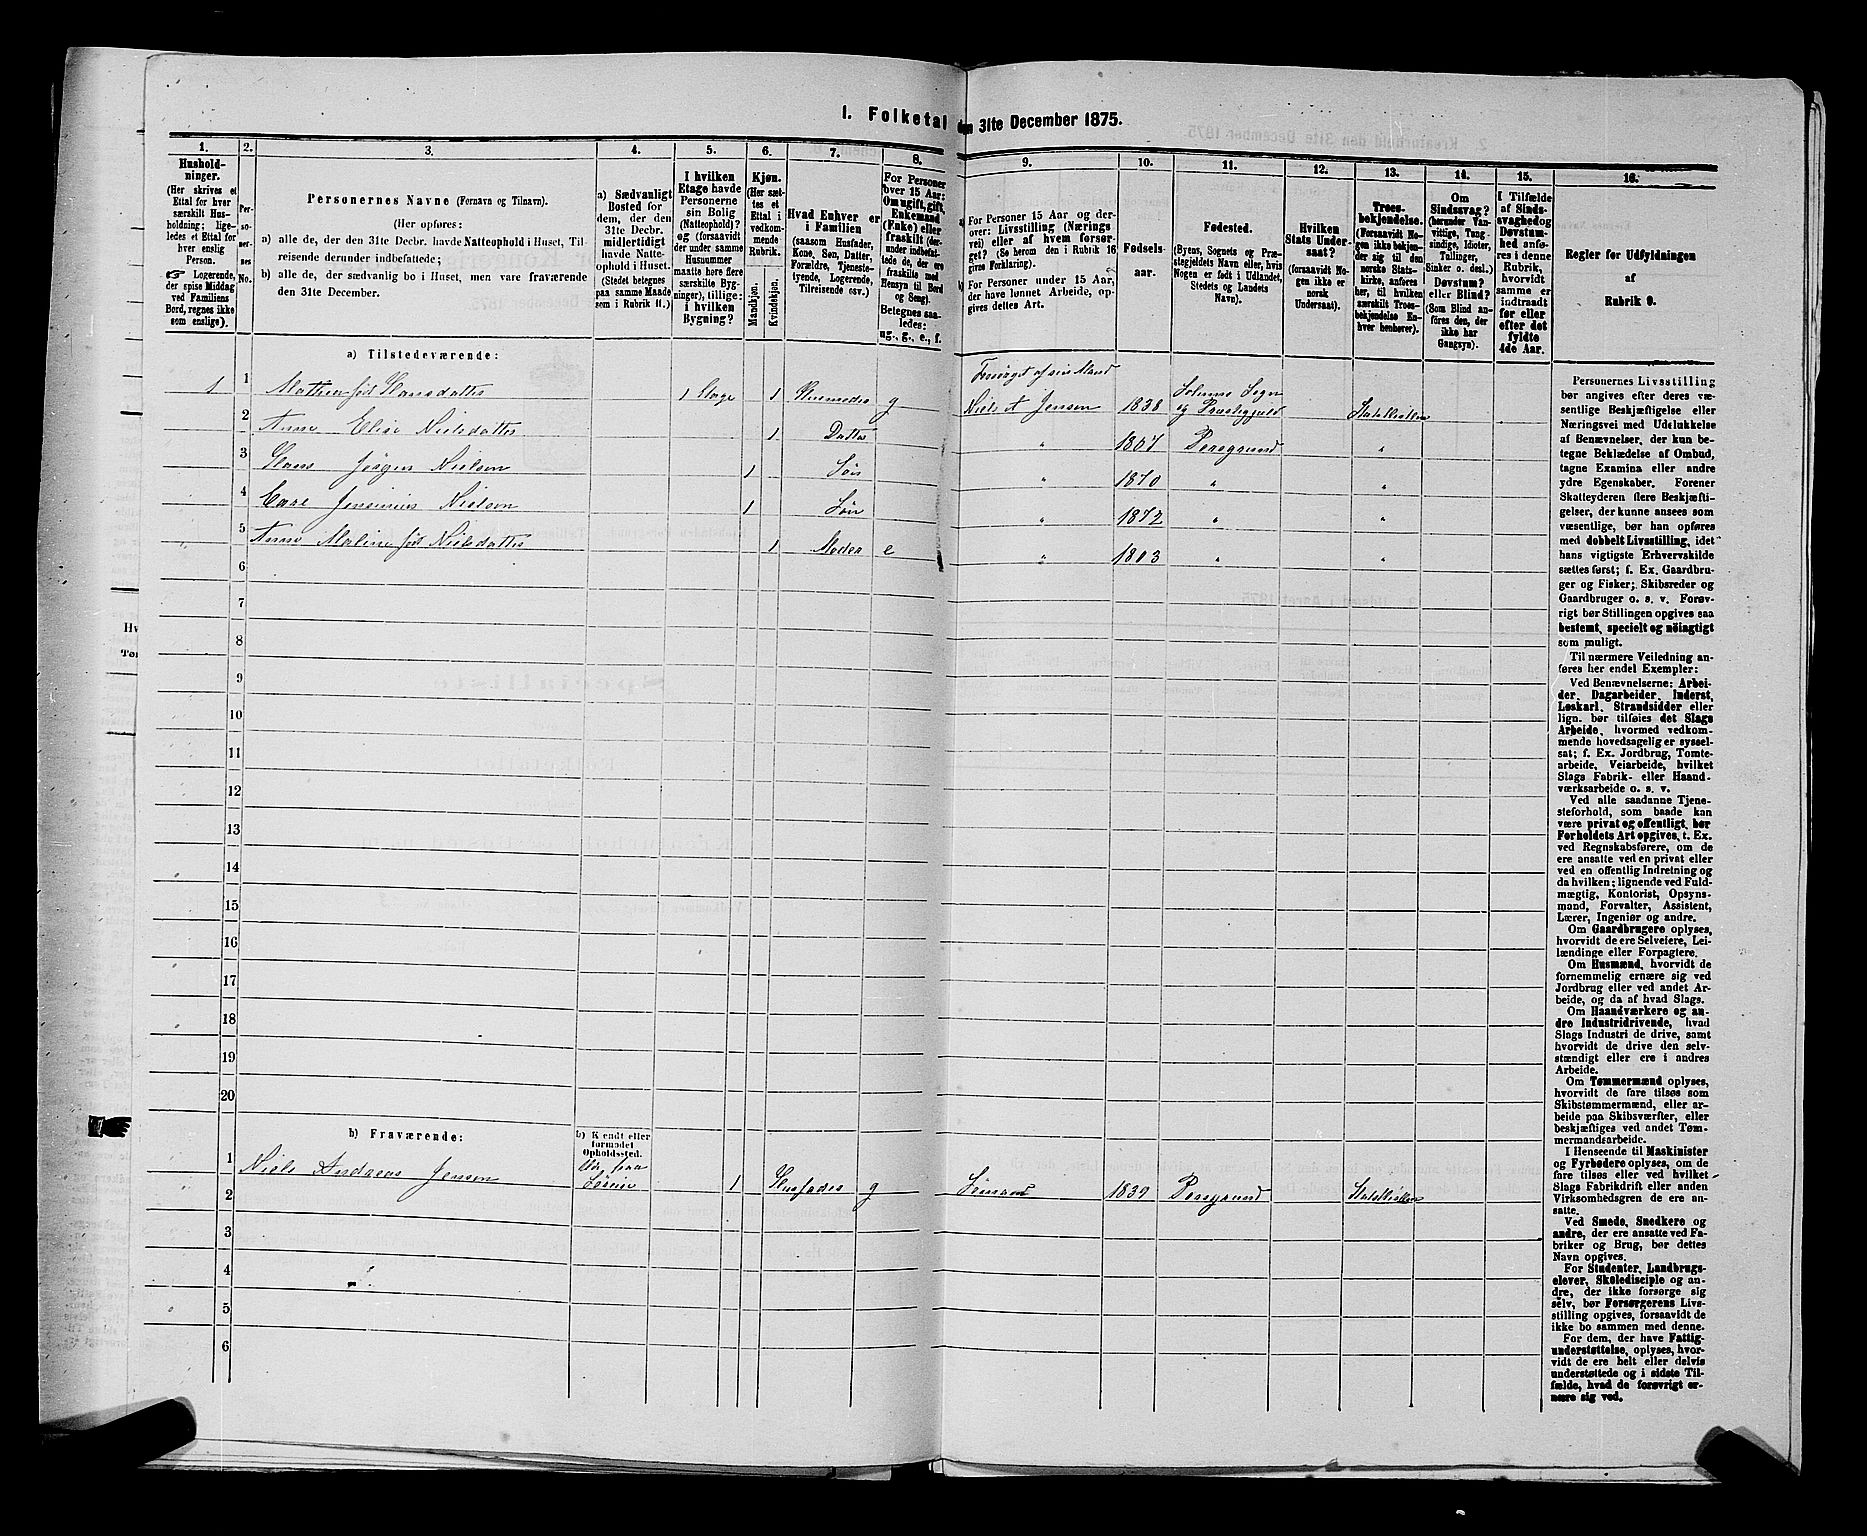 1. Folketal den 31te December 1875.
1. 2. 3. 4. 5. 6. 7. 8. 9. 10. 11. 12. 13. 14. 15. 16.
Hushold-
ninger.
(Her skrives et
Ettal for hver
særskilt Hus-
holdning; lige-
ledes et Ettal for
hver enslig
Person.
Logerende,
der spise Middag
ved Familiens
Bord, regnes ikke
som enslige).
Per-
so-
ner-
nes
No.
Personernes Navne (Fornavn og Tilnavn).
(Her opføres:
a) alle de, der den 31te Decbr. havde Natteophold i Huset, Til-
reisende derunder indbefattede;
b) alle de, der sædvanlig bo i Huset, men vare fraværende
den 31te December.
a) Sædvanligt
Bosted for
dem, der den
31te Decbr.
midlertidigt
havde Natte-
ophold i Huset.
(Stedet betegnes
paa samme Maade
som i Rubrik 11.)
I hvilken
Etage havde
Personerne
sin Bolig
(Natteophold)?
og (forsaavidt
der under samme
Husnummer
maatte høre flere
særskilte Byg-
ninger), tillige:
i hvilken
Bygning?
Kjøn.
(Her sæt-
tes et
Ettal i
vedkom-
mende
Rubrik.
Mandkjøn.
Kvindekjøn.
Hvad Enhver er
i Familien
(saasom Husfader,
Kone, Søn, Datter,
Forældre, Tjeneste-
tyende, Logerende,
Tilreisende osv.)
For Personer
over 15 Aar:
Om ugift, gift,
Enkemand
(Enke) eller
fraskilt (der-
under indbefat-
tede de, der ere
fraskilte med
Hensyn til Bord
og Seng).
Betegnes saa-
ledes:
ug., g., e., f.
For Personer 15 Aar og der-
over: Livsstilling (Nærings
vei) eller af hvem forsør-
get? (Se herom den i Rubrik 16
givne Forklaring).
For Personer under 15 Aar,
der have lønnet Arbeide, op-
gives dettes Art.
Fødsels-
aar.
Fødested.
(Byens, Sognets og Præ-
stegjeldets Navn eller, hvis
Nogen er født i Udlandet,
Stedets og Landets
Navn).
Hvilken
Stats Under-
saat?
(forsaavidt No-
gen ikke er
norsk
Undersaat).
Troes-
bekjendelse.
(Forsaavidt No-
gen ikke bekjen-
der sig til den
norske Stats-
kirke, anføres
her, til hvilken
særskilt Troes-
bekjendelse En-
hver henhører).
Om
Sindssvag?
(herunder Van-
vittige, Tung-
sindige, Idioter,
Tullinger,
Sinker o. desl.)
Døvstum?
eller Blind?
(Som Blind an-
føres den, der
ikke har
Gangsyn).
I Tilfælde
af Sinds-
svaghed og
Døvstum-
hed anfø-
res i denne
Rubrik,
hvorvidt
samme er
indtraadt
før eller
efter det
fyldte
4de Aar.
Regler for Udfyldningen
af
Rubrik 9.
a) Tilstedeværende:
1 1 Mathea født Hansdatter 1 Etage 1 Huusmoder g Forsørget af sin Mand Niels A Jensen 1838 Solum Sogn og Præstegjeld Statskirken
2 Anne Elise Nielsdatter 1 Datter " 1867 Porsgrund "
3 Hans Jørgen Nielsen 1 Søn " 1870 " "
4 Carl Jensenius Nielsen 1 Søn " 1872 " "
5 Anne Maline født Nielsdatter 1 Moder e " 1803 " "
6
7
8
9
10
11
12
13
14
15
16
17
18
19
20
b) Fraværende:
b) Kjendt eller
formodet
Opholdssted.
1 Niels Andreas Jensen Ude paa Søreise 1 Husfader g Sømand 1839 Porsgrund Statskirken
2
3
4
5
6
Personernes Livsstilling
bør angives efter deres væ-
sentlige Beskjæftigelse eller
Næringsvei med Udelukkelse
af Benævnelser, der kun be-
tegne Beklædelse af Ombud,
tagne Examina eller andre
ydre Egenskaber. Forener
Skatteyderen flere Beskjæfti-
gelser, der kunne ansees som
væsentlige, bør han opføres
med dobbelt Livsstilling, idet
hans vigtigste Erhvervskilde
sættes først; f. Ex. Gaardbru-
ger og Fisker; Skibsreder og
Gaardbruger o. s. v. Forøv-
rigt bør Stillingen opgives saa
bestemt, specielt og nöiagtigt
som muligt.
Til nærmere Veiledning an-
føres her endel Exempler:
Ved Benævnelserne: Arbei-
der, Dagarbeider, Inderst,
Løskarl, Strandsidder eller
lign. bør tilføies det Slags
Arbeide, hvormed vedkom-
mende hovedsagelig er syssel-
sat; f. Ex. Jordbrug, Tomte-
arbeide, Veiarbeide, hvilket
Slags Fabrik- eller Haand-
værksarbeide o. s. v.
Ved alle saadanne Tjene-
steforhold, som baade kan
være privat og offentligt, bør
Forholdets Art opgives, t. Ex.
ved Regnskabsførere, om de
ere ansatte ved en privat eller
ved en offentlig Indretning og
da hvilken; lignende ved Fuld-
mægtig, Kontorist, Opsyns-
mand, Forvalter, Assistent,
Lærer, Ingeniør og andre.
Om Gaardbrugere oplyses,
hvorvidt de ere Selveiere, Lei-
lændinge eller Forpagtere.
Om Husmænd, hvorvidt de
fornemmelig ernære sig ved
Jordbrug eller ved andet Ar-
beide, og da af hvad Slags.
Om Haandværkere og an-
dre Industridrivende, hvad
Slags Industri de drive, samt
hvorvidt de drive den selv-
stændigt eller ere i andres
Arbeide.
Om Tømmermænd oplyses,
hvorvidt de fare tilsøs som
Skibstømmermænd, eller ar-
beide paa Skibsværfter, eller
beskjæftiges ved andet Tøm-
mermandsarbeide.
I Henseende til Maskinister
og Fyrbødere oplyses, om de
fare tilsøs eller ved hvilket
Slags Fabrikdrift eller anden
Virksomhedsgren de ere an-
satte.
Ved Smede, Snedkere og
andre, der ere ansatte ved Fa-
briker og Brug, bør dettes
Navn opgives.
For Studenter, Landbrugs-
elever, Skoledisciple og an-
dre, der ikke forsørge sig
selv, bør Forsørgerens Livs-
stilling opgives, forsaavidt de
ikke bo sammen med denne.
For dem, der have Fattig-
understøttelse, oplyses, hvor-
vidt de ere helt eller delvis
understøttede og i sidste Til-
fælde, hvad de forøvrigt er-
nære sig ved.